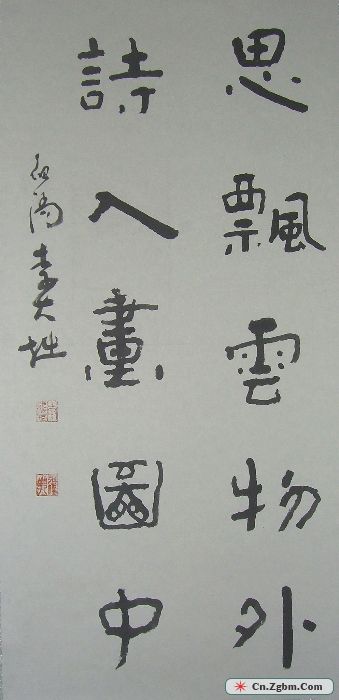 思飄雲物外
詩入畫圖中
李大
Cn.Zgbm.Com